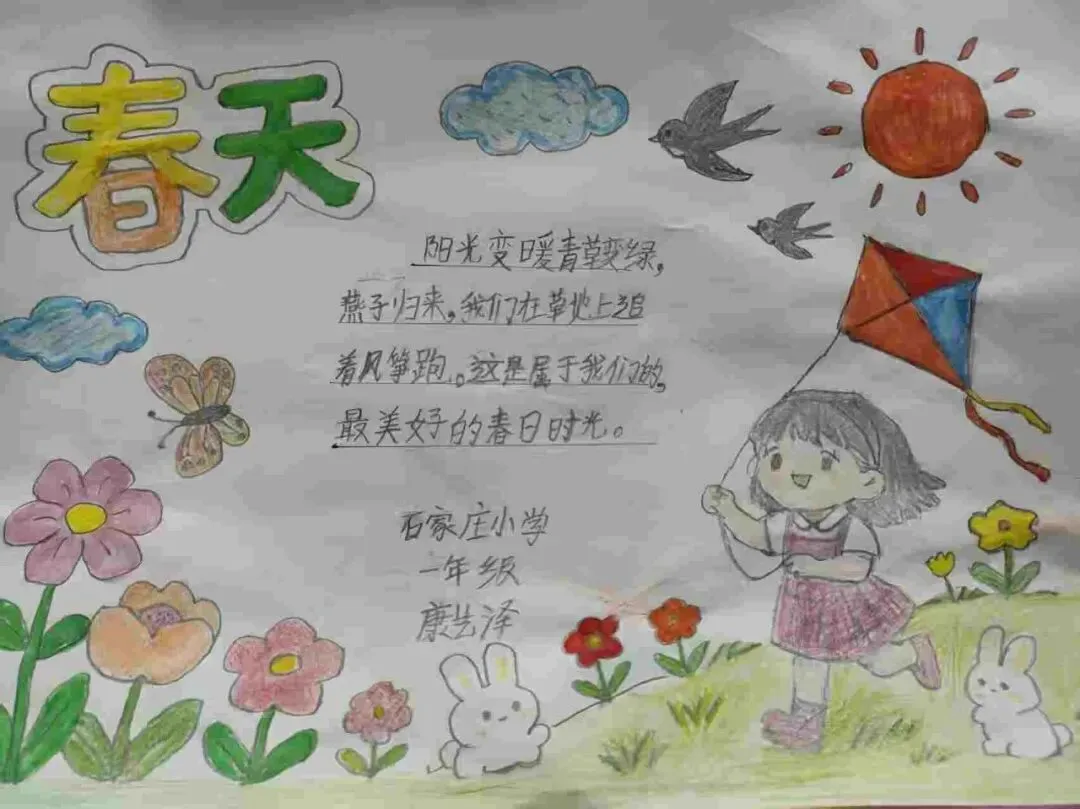 春天
阳光变暖青草变绿，
燕子归来，我们在草地上追
着风筝跑。这是属于我们的，
最美好的春日时光。
石家庄小学
一年级
康艺泽